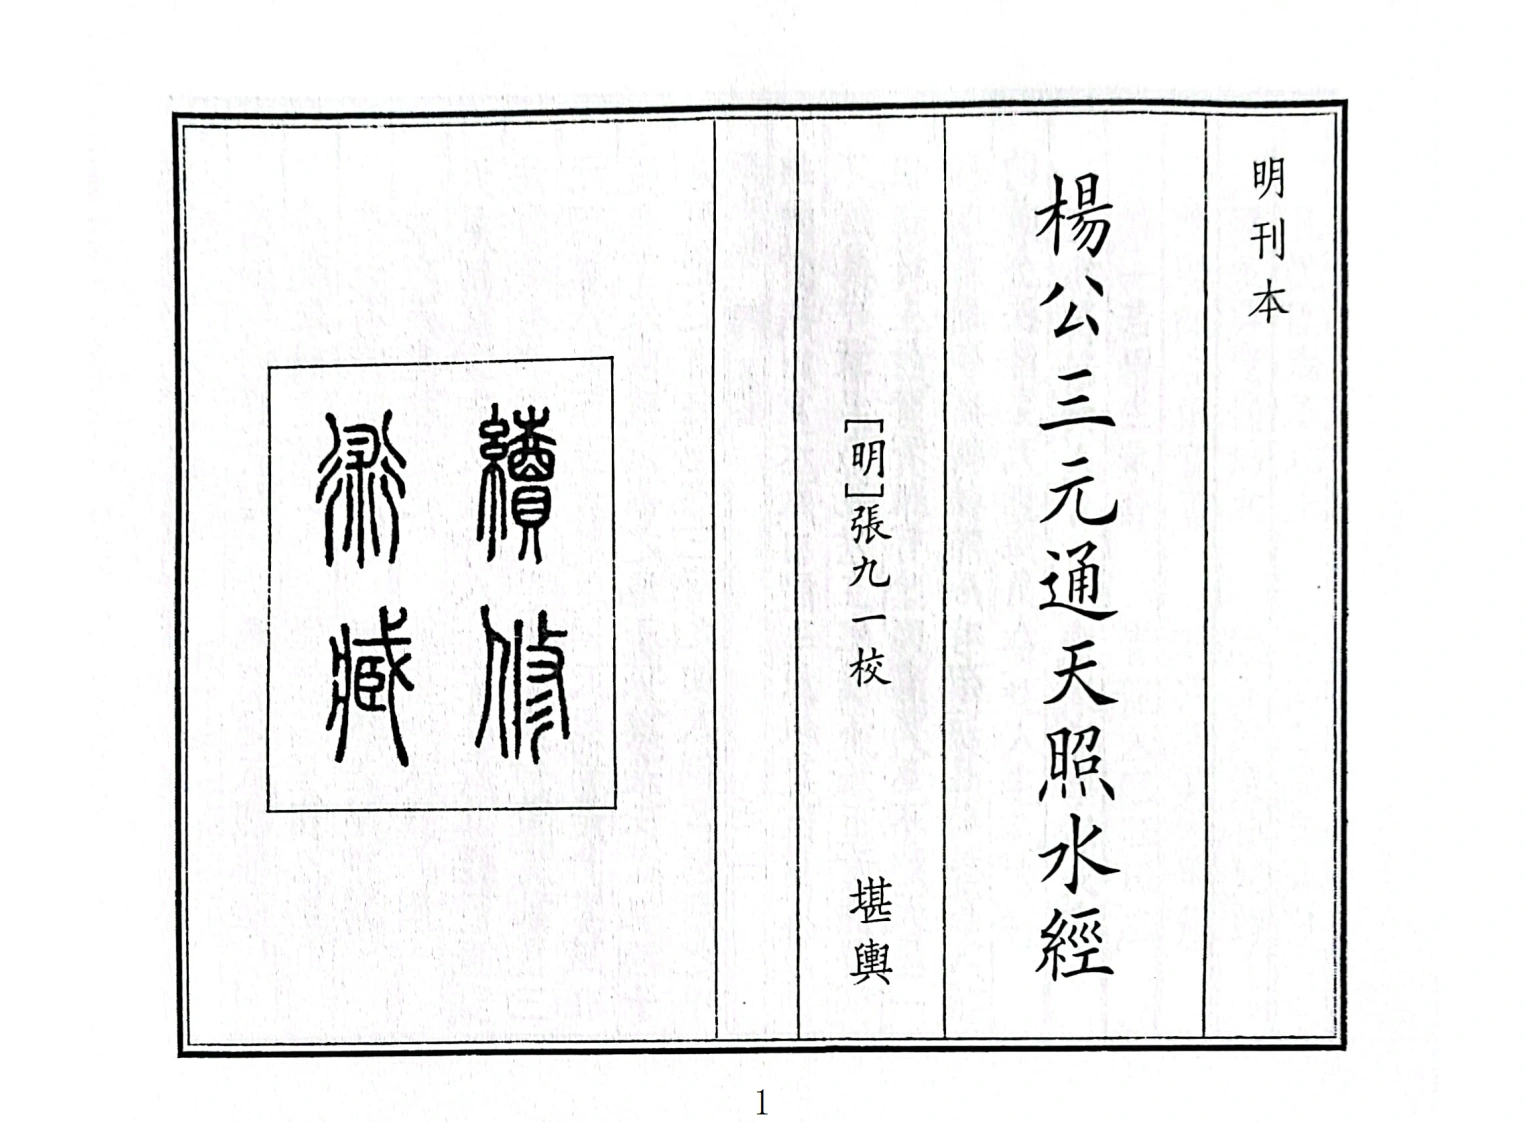 明刊本
楊公三元通天照水經
［明］張九一校
堪輿
續修
術藏
1